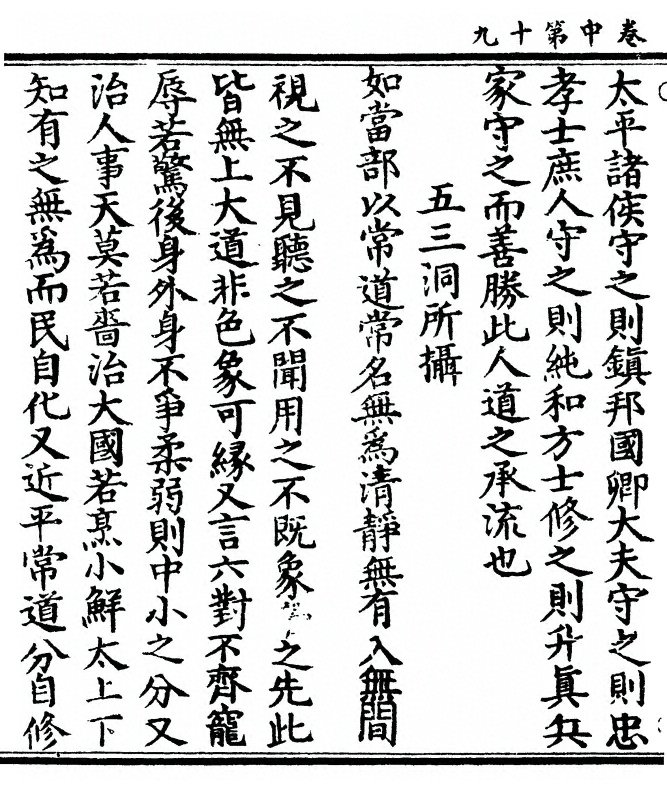 卷中第十九
太平諸侯守之則鎮邦國卿大夫守之則忠
孝士庶人守之則純和方士修之則升真兵
家守之而善勝此人道之承流也
五三洞所攝
如當部以常道常名無為清靜無有入無間
視之不見聽之不聞用之不既象之先此
皆無上大道非色象可緣又言六對不齊寵
辱若驚後身外身不爭柔弱則中小之分又
治人事天莫若嗇治大國若烹小鮮太上下
知有之無為而民自化又近平常道分自修